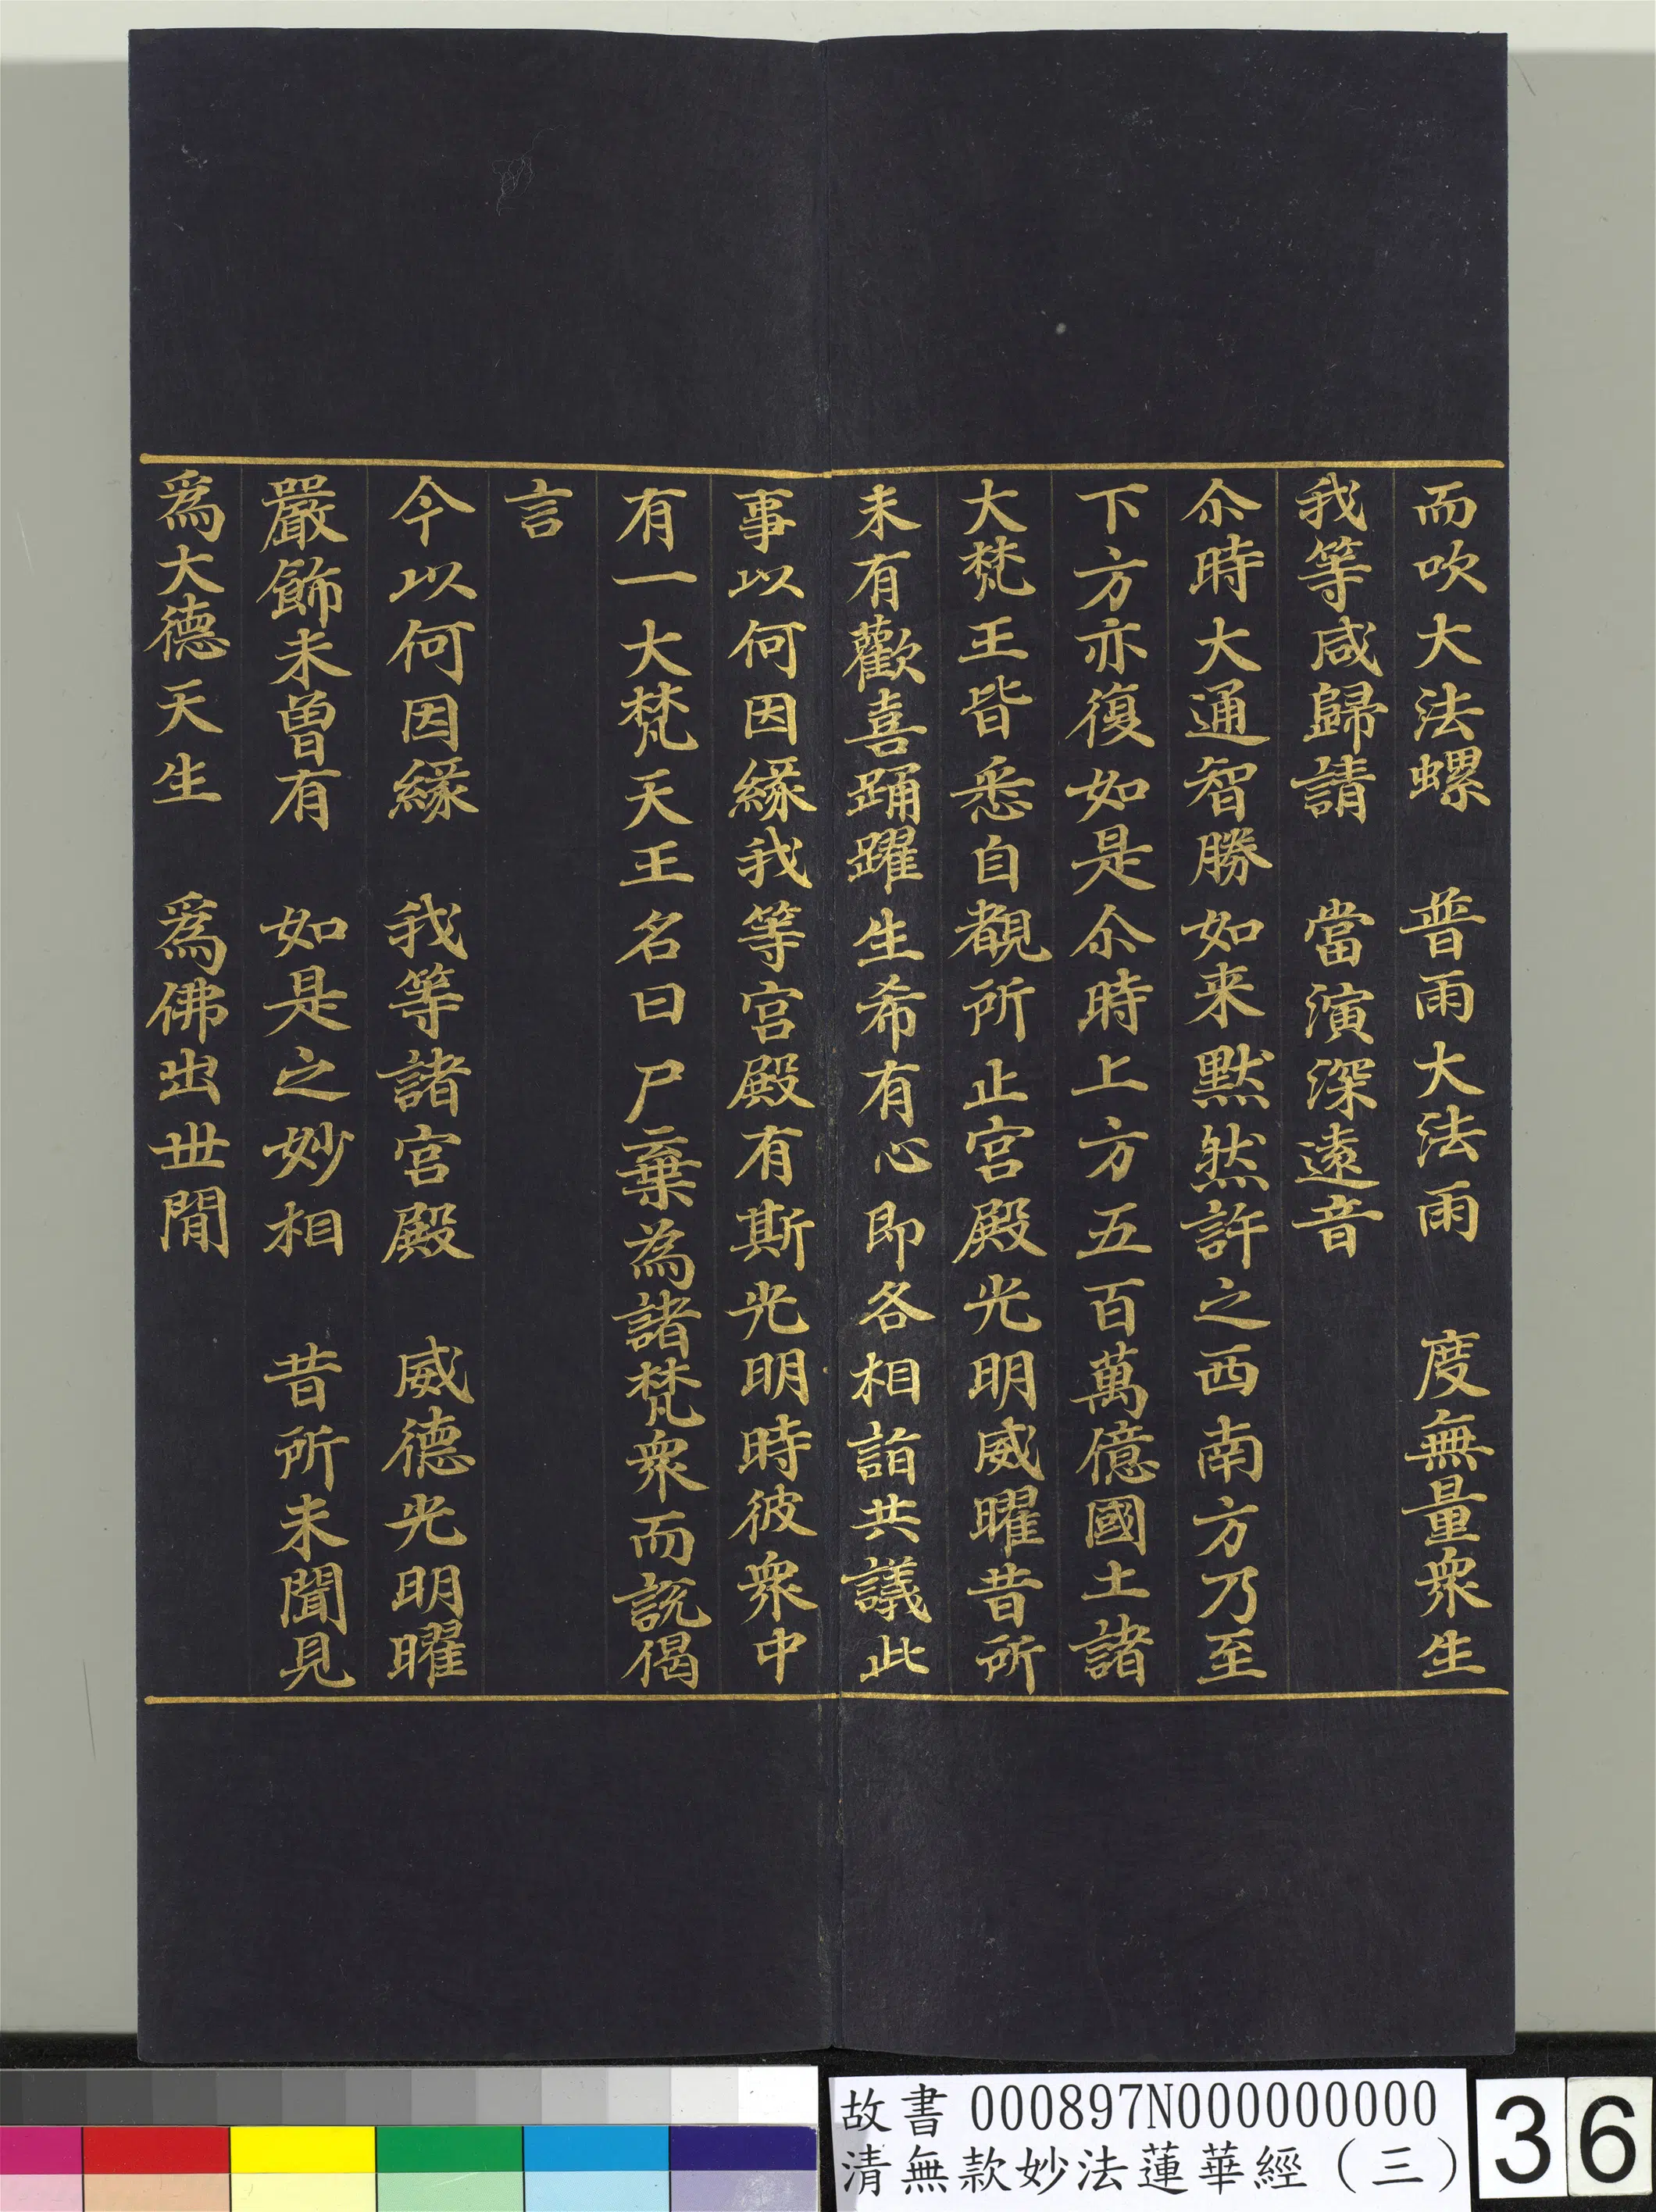 而吹大法螺　普雨大法雨　度無量衆生
我等咸歸請　當演深遠音
尒時大通智勝如来默然許之西南方乃至
下方亦復如是尒時上方五百萬億國土諸
大梵王皆悉自覩所止宮殿光明威曜昔所
未有歡喜踊躍生希有心即各相詣共議此
事以何因緣我等宮殿有斯光明時彼衆中
有一大梵天王名曰尸棄為諸梵衆而說偈
言
今以何因緣　我等諸宮殿　威德光明曜
嚴飾未曾有　如是之妙相　昔所未聞見
爲大德天生　爲佛出世間
故書 000897N000000000
清無款妙法蓮華經（三）
36